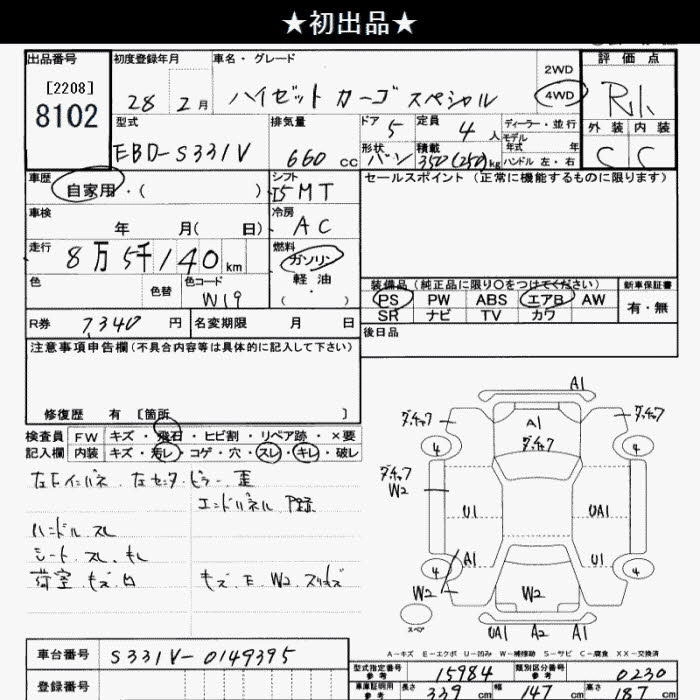 ★初出品★
出品番号
[2208]
8102
初度登録年月
28 2月
車名・グレード
ハイゼット カーゴ スペシャル
2WD
4WD
評価点
外装 内装
C C
型式
EBD-S331V
排気量
660 cc
ドア 5
定員 4人
ディーラー・並行
モデル
年式 年
形状 バン
積載 350(250)kg
ハンドル 左・右
車歴
自家用・( )
シフト
I5 MT
セールスポイント (正常に機能するものに限ります)
車検
年 月( 日)
冷房
AC
走行
8万5千140km
燃料
ガソリン
軽油
( ・ )
色
色替
色コード
W19
装備品(純正品に限り○をつけてください)
新車保証書
PS PW ABS エアB AW
SR ナビ TV カワ
有・無
R券 7340円
名変期限 月 日
後日品
注意事項申告欄(不具合内容等は具体的に記入して下さい)
修復歴 有 [箇所 ]
検査員 FW キズ・飛石・ヒビ割・リペア跡・×要
記入欄 内装 キズ・汚レ・コゲ・穴・スレ・キレ・破レ
左Fインパネ 左センターピラー 歪
エンドパネル
ハンドル スレ
シート スレ キレ
荷室 キズ 凹
キズ E W2
A1
A1
4
4
W2
U1
UA1
A1
U1
4
4
W2
W2
スペア
UA1 A2 A1
A-キズ E-エクボ U-凹み W-補修跡 S-サビ C-腐食 XX-交換済
車台番号 S331V-0149395
登録番号
型式指定番号
参考
15984
類別区分番号
参考
0230
車庫証明用
参考
長さ 339cm 幅 147cm 高さ 187cm